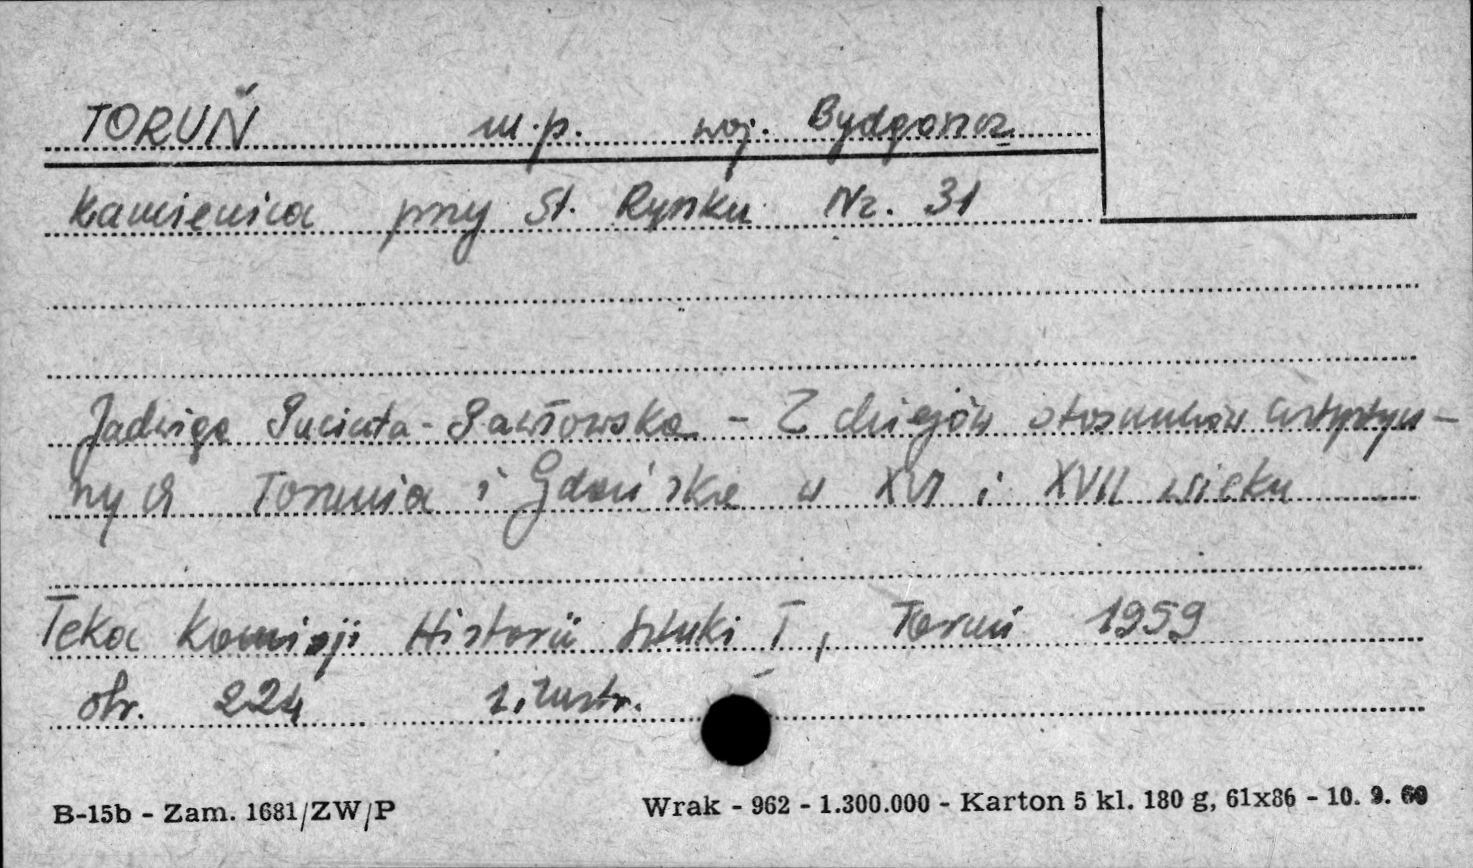 TORUŃ m.p. woj. Bydgoszcz
kamienica przy St. Rynku Nr. 31
Jadwiga Puciata-Pawłowska - Z dziejów stosunków artystycz-
nych Torunia i Gdańska w XVI i XVII wieku
Teka Komisji Historii Sztuki I, Toruń 1959
str. 224 1 ilustr.
B-15b - Zam. 1681/ZW/P
Wrak - 962 - 1.300.000 - Karton 5 kl. 180 g, 61x86 - 10. 9. 60